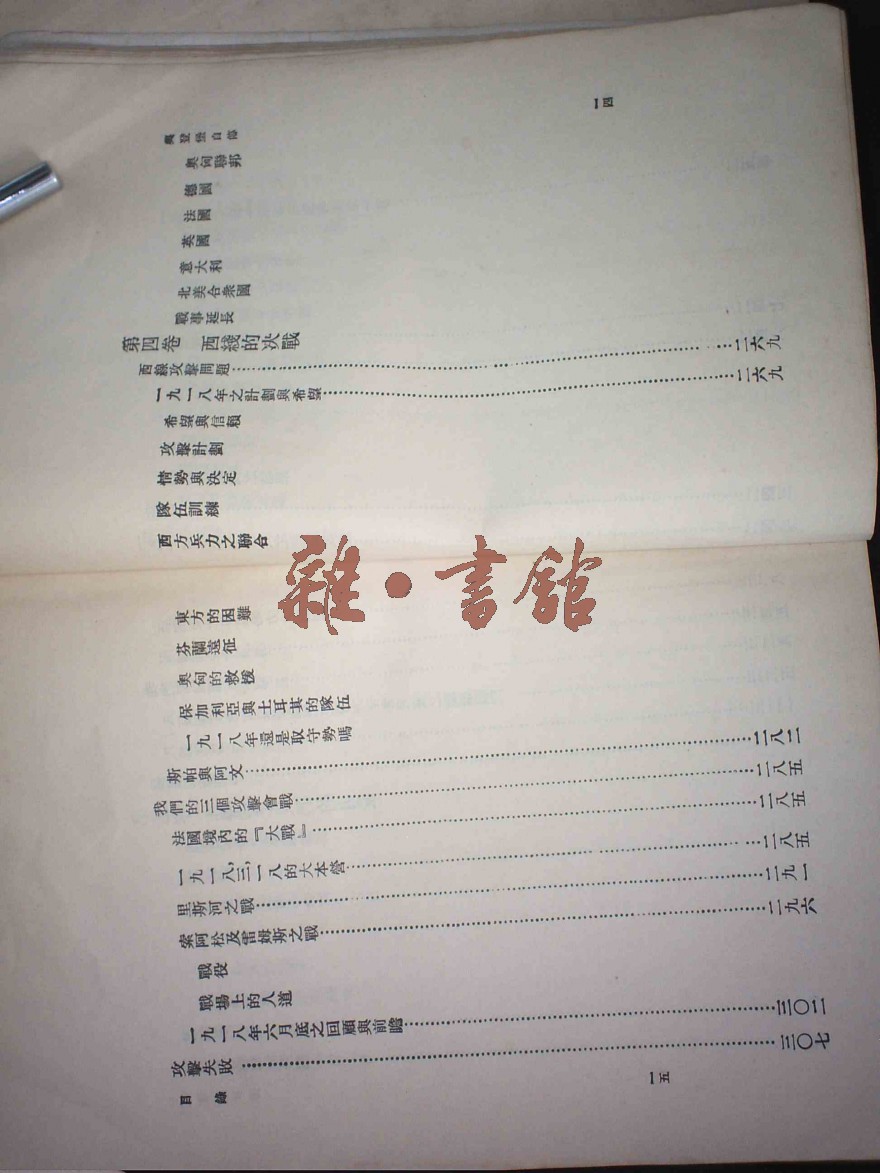 興登堡自傳
一四
奧匈聯邦
德國
法國
英國
意大利
北美合衆國
戰事延長
第四卷　西綫的决戰
西線攻擊問題……二六九
一九一八年之計劃與希望……二六九
希望與信賴
攻擊計劃
情勢與決定
隊伍訓練
西方兵力之聯合
雜•書館
東方的困難
芬蘭遠征
奧匈的救援
保加利亞與土耳其的隊伍
一九一八年還是取守勢嗎
斯帕與阿文……二八二
我們的三個攻擊會戰……二八五
法國境內的『大戰』……二八五
一九一八,三,一八的大本營……二八五
里斯河之戰……二九一
索阿松及雷姆斯之戰……二九六
戰役
戰場上的人道
一九一八年六月底之回顧與前瞻……三〇二
攻擊失敗……三〇七
目錄
一五